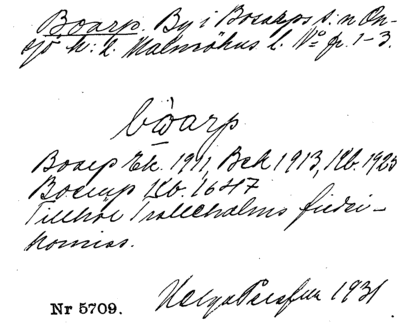 Boarp. By i Bosarps s:n On-
sjö h:d. Malmöhus l. No fr. 1-3.
bo̱arp
Boarp Ek. 1911, Bek 1913, Kb. 1925
Boerup Kb. 1647
Tillhör Trolleholms fidei-
komiss.
Helge 1931
Nr 5709.